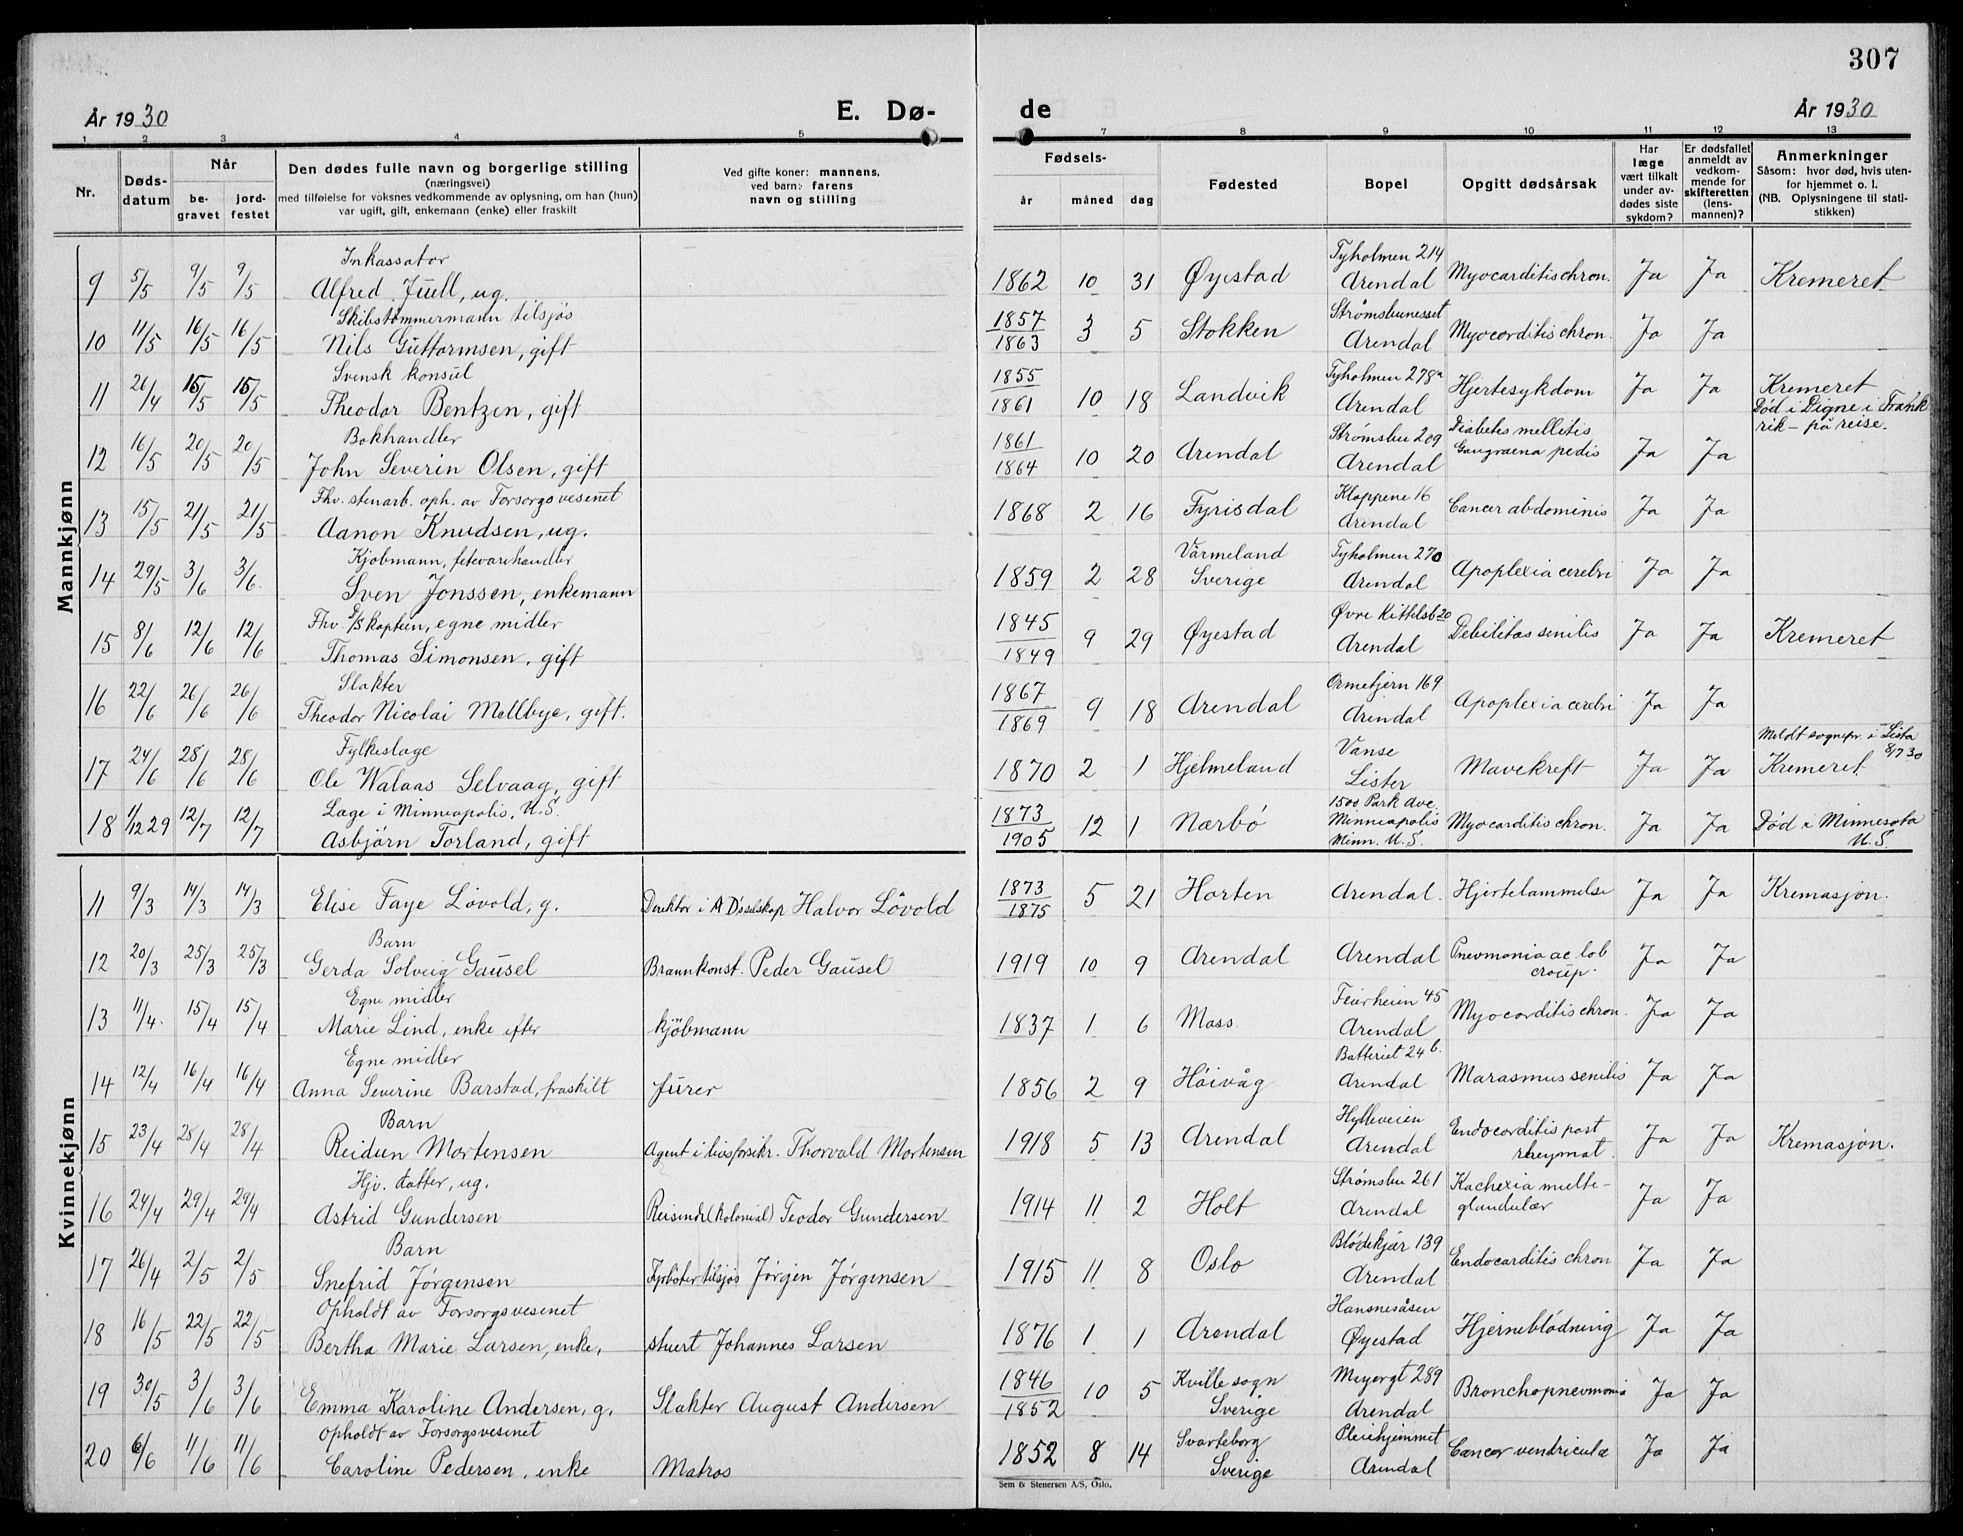 307
År 1930 E. Dø- de År 1930
1 2 3 4 5 7 8 9 10 11 12 13
Nr. Døds-datum Når begravet jordfestet
Den dødes fulle navn og borgerlige stilling
(næringsvei)
med tilføielse for voksnes vedkommende av oplysning, om han (hun)
var ugift, gift, enkemann (enke) eller fraskilt
Ved gifte koner: mannens,
ved barn: farens
navn og stilling
Fødsels- år måned dag
Fødested
Bopel
Opgitt dødsårsak
Har læge vært tilkalt under avdødes siste sykdom?
Er dødsfallet anmeldt av vedkommende for skifteretten (lensmannen)?
Anmerkninger
Såsom: hvor død, hvis utenfor hjemmet o. l.
(NB. Oplysningene til statistikken)
Mannkjønn
Inkassator Tyholmen 214
9 5/5 9/5 9/5 Alfred Juell, ug. 1862 10 31 Øyestad Arendal Myocarditis chron. Ja Ja Kremeret
Skibstømmermann tilsjøs 1857 Strømsbunesset
10 11/5 16/5 16/5 Nils Guttormsen, gift 1863 3 5 Stokken Arendal Myocorditis chron. Ja Ja
Svensk konsul 1855 Tyholmen 278a
11 26/4 15/5 15/5 Theodor Bentzen, gift 1861 10 18 Landvik Arendal Hjertesykdom Ja Ja Kremeret
Død i Digne i Frankrik - på reise.
Bokhandler 1861 Strømsbu 209 Diabetes mellitis
12 16/5 20/5 20/5 John Severin Olsen, gift 1864 10 20 Arendal Arendal Gangraena pedis Ja Ja
Fhv. stenarb. oph. av Forsorgsvesenet Kloppene 16
13 15/5 21/5 21/5 Aanon Knudsen, ug. 1868 2 16 Fyrisdal Arendal Cancer abdominis Ja Ja
Kjøbmann, fetevarehandler Värmeland Tyholmen 270
14 29/5 3/6 3/6 Sven Jonssen, enkemann 1859 2 28 Sverige Arendal Apoplexia cerebri Ja Ja
Fhv. S/S kaptein, egne midler 1845 Øvre Kittelsb 20
15 8/6 12/6 12/6 Thomas Simonsen, gift 1849 9 29 Øyestad Arendal Debilitas senilis Ja Ja Kremeret
Slakter 1867 Ormetjern 169
16 22/6 26/6 26/6 Theodor Nicolai Mellbye, gift. 1869 9 18 Arendal Arendal Apoplexia cerebri Ja Ja
Fylkeslæge Vanse Meldt sognepr. i Lista 8/7 30
17 24/6 28/6 28/6 Ole Walaas Selvaag, gift 1870 2 1 Hjelmeland Lister Mavekreft Ja Ja Kremeret.
Læge i Minneapolis, U.S. 1873 1500 Park Ave.
18 1/12 29 12/7 12/7 Asbjørn Torland, gift 1905 12 1 Nærbø Minneapolis Minn. U.S. Myocarditis chron. Ja Ja Død i Minnesota U.S.
Kvinnekjønn
11 9/3 14/3 14/3 Elise Faye Lövold, g. Direktør i A D's selskap Halvor Lövold 1873 1875 5 21 Horten Arendal. Hjertelammelse Ja Ja Kremasjon.
Barn
12 20/3 25/3 25/3 Gerda Solveig Gausel Brannkonst. Peder Gausel 1919 10 9 Arendal Arendal Pneumonia ac. lob croup. Ja Ja
Egne midler Feierheien 45
13 11/4 15/4 15/4 Marie Lind, enke efter kjöbmann 1837 1 6 Moss. Arendal Myocorditis chron. Ja Ja
Egne midler Batteriet 24 b.
14 12/4 16/4 16/4 Anna Severine Barstad, fraskilt furer 1856 2 9 Höivåg Arendal Marasmus senilis Ja Ja
Barn Hylleveien
15 23/4 28/4 28/4 Reidun Mortensen Agent i livsforsikr. Thorvald Mortensen 1918 5 13 Arendal Arendal Endocorditis post rheymat. Ja Ja Kremasjon.
Hjv. datter, ug. Strømsbu 261
16 24/4 29/4 29/4 Astrid Gundersen Reisende (kolonial) Teodor Gundersen 1914 11 2 Holt Arendal Kachexia multeglandulær Ja Ja
Barn Blödekjär 139
17 26/4 2/5 2/5 Snefrid Jörgensen Fyrbøter tilsjøs Jörgen Jörgensen 1915 11 8 Oslo Arendal Endocarditis chron Ja Ja
Opholdt av Forsorgsvesenet Hansnesåsen
18 16/5 22/5 22/5 Bertha Marie Larsen, enke, stuert Johannes Larsen 1876 1 1 Arendal Øyestad Hjerneblödning Ja Ja
1846 Kville sogn Meyergt 289
19 30/5 3/6 3/6 Emma Karoline Andersen, g. Slakter August Andersen 1852 10 5 Sverige Arendal Bronchopneumonia Ja Ja
Opholdt av Forsorgsvesenet Svarteborg Pleiehjemmet
20 6/6 11/6 11/6 Caroline Pedersen, enke Matros 1852 8 14 Sverige Arendal Cancer ventriculæ Ja Ja
Sem & Stenersen A/S, Oslo.